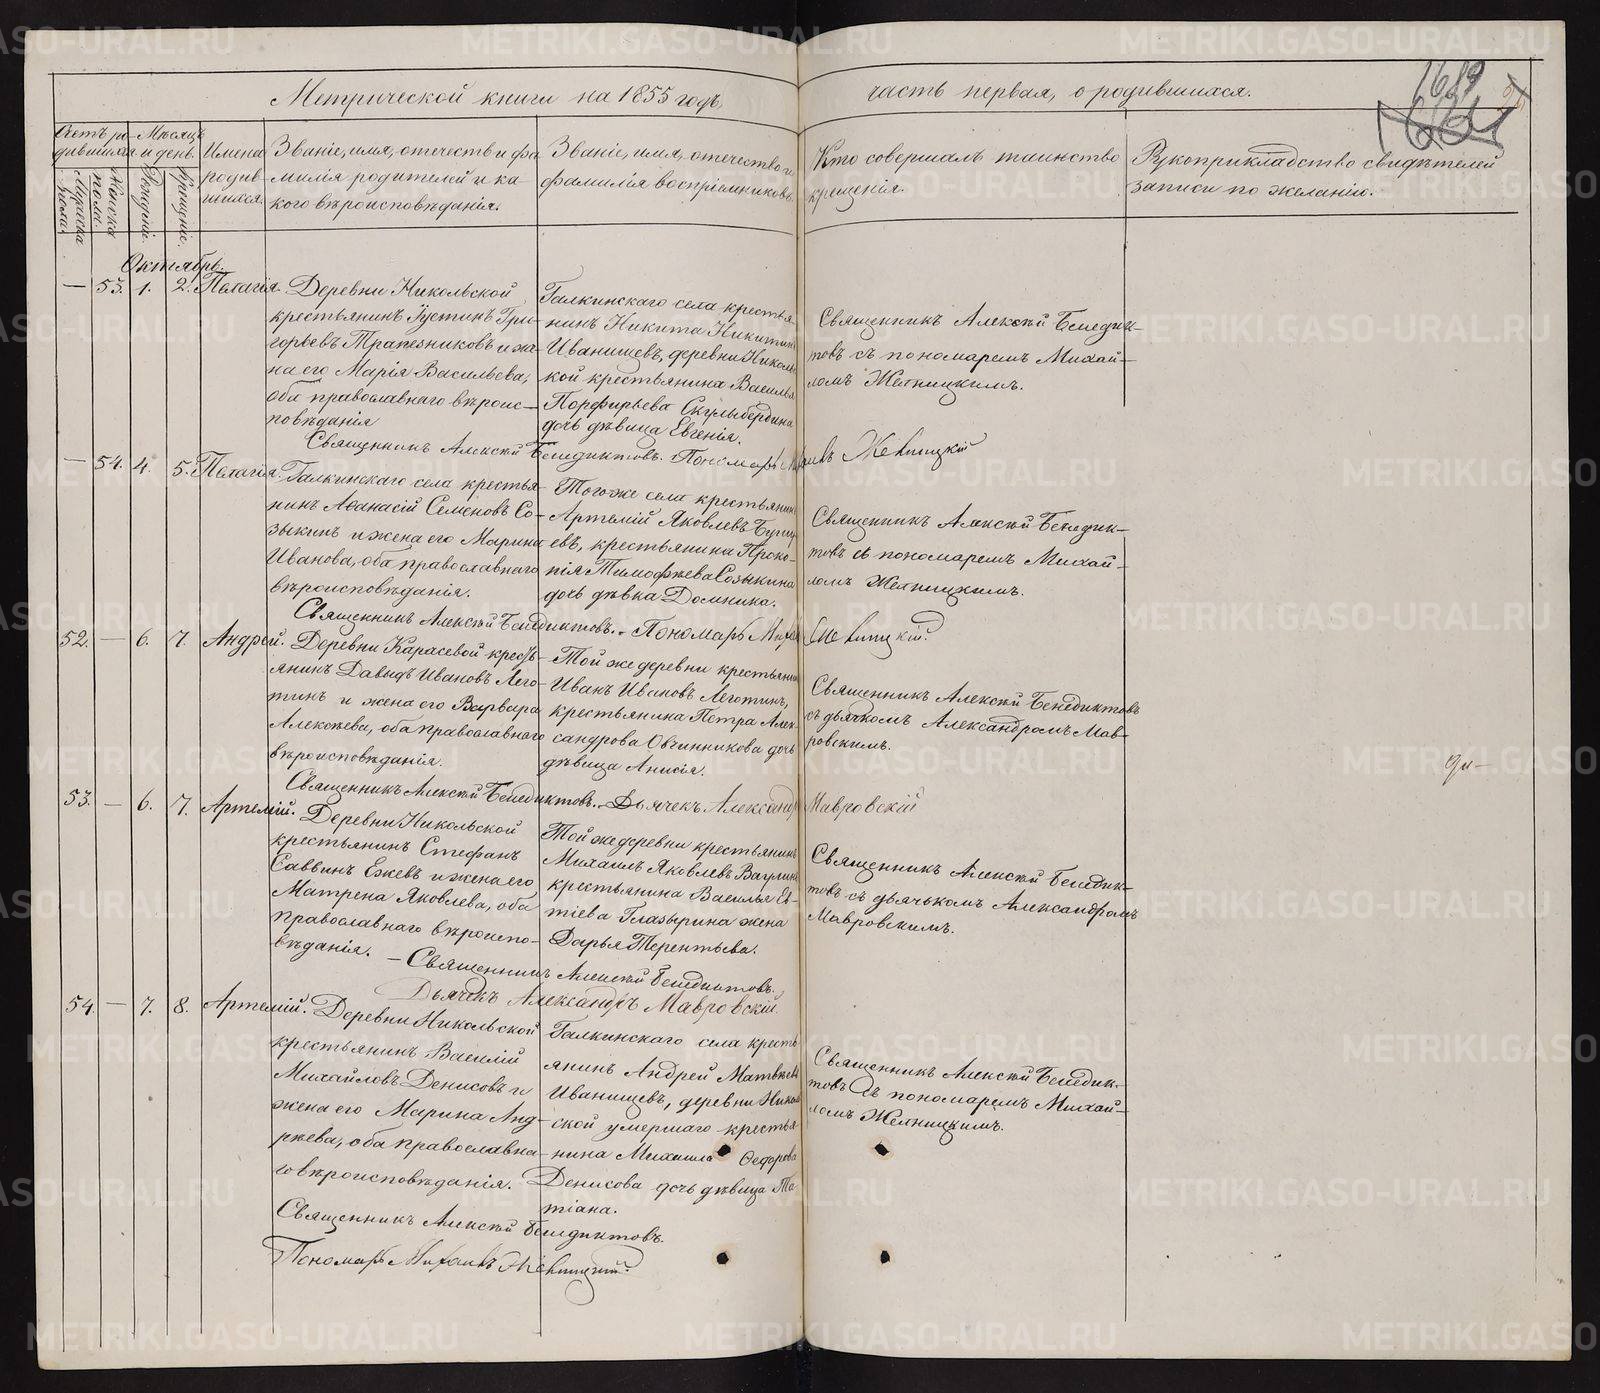 Метрической книги на 1855 годъ,
часть первая, о родившихся.
Счетъ ро-
дившихся
Мужеска
пола.
Женска
пола.
Мѣсяцъ
и день.
Рожденiе.
Крещенiе.
Имена
родив-
шихся.
Званiе, имя, отечество и фа-
милiя родителей и ка-
кого вѣроисповѣданiя.
Званiе, имя, отечество и
фамилiя воспрiемниковъ.
Кто совершалъ таинство
крещенiя.
Рукоприкладство свидѣтелей
записи по желанiю.
Октябрь.
— 53. 1. 2. Пелагiя.
Деревни Никольской
крестьянинъ Iустинъ Гри-
горьевъ Трапезниковъ и же-
на его Марiя Васильева,
оба православнаго вѣроис-
повѣданiя
Галкинскаго села крестья-
нинъ Никита Никитинъ
Иванищевъ, деревни Николь
кой крестьянина Василья
Порфирьева Скулыбердина
дочь дѣвица Евгенiя.
Священникъ Алексѣй Бенедик-
товъ съ пономаремъ Михай-
ломъ Желницкимъ.
Священникъ Алексѣй Бенедиктовъ. Пономарь
— 54. 4. 5. Пелагiя.
Галкинскаго села крестья-
нинъ Аѳанасiй Семеновъ Со-
зыкинъ и жена его Марина
Иванова, оба православнаго
вѣроисповѣданiя.
Тогоже села крестьянинъ
Артемiй Яковлевъ
евъ, крестьянина Проко-
пiя Тимоѳѣева Созыкина
дочь дѣвка Домника.
Священникъ Алексѣй Бенедик-
товъ съ пономаремъ Михай-
ломъ Желницкимъ.
Священникъ Алексѣй Бенедиктовъ. Пономарь
52. — 6. 7. Андрей.
Деревни Карасевой кресть-
янинъ Давыдъ Ивановъ Лего-
тинъ и жена его Варвара
Алексѣева, оба православнаго
вѣроисповѣданiя.
Той же деревни крестьянинъ
Иванъ Ивановъ Леготинъ,
крестьянина Петра Алек-
сандрова Овчинникова дочь
дѣвица Анисiя.
Священникъ Алексѣй Бенедиктовъ
съ дьячкомъ Александромъ Мав-
ровскимъ.
Священникъ Алексѣй Бенедиктовъ. Дьячекъ Александръ Мавровскiй
53. — 6. 7. Артемiй.
Деревни Никольской
крестьянинъ Стефанъ
Саввинъ Ежевъ и жена его
Матрена Яковлева, оба
православнаго вѣроиспо-
вѣданiя.
Той же деревни крестьянинъ
Михаилъ Яковлевъ
крестьянина Василья Ев-
тiева Глазырина жена
Дарья Терентьева.
Священникъ Алексѣй Бенедик-
товъ съ дьячькомъ Александромъ
Мавровскимъ.
Священникъ Алексѣй Бенедиктовъ.
Дьячекъ Александръ Мавровскiй.
54. — 7. 8. Артемiй.
Деревни Никольской
крестьянинъ Василiй
Михайловъ Денисовъ и
жена его Марина Анд-
рѣева, оба православна-
го вѣроисповѣданiя.
Галкинскаго села кресть
янинъ Андрей Матвѣевъ
Иванищевъ, деревни Николь
ской умершаго крестья
нина Михаила Ѳедорова
Денисова дочь дѣвица Та
тiана.
Священникъ Алексѣй Бенедик-
товъ съ пономаремъ Михай-
ломъ Желницкимъ.
Священникъ Алексѣй Бенедиктовъ.
Пономарь Михаилъ
METRIKI.GASO-URAL.RU